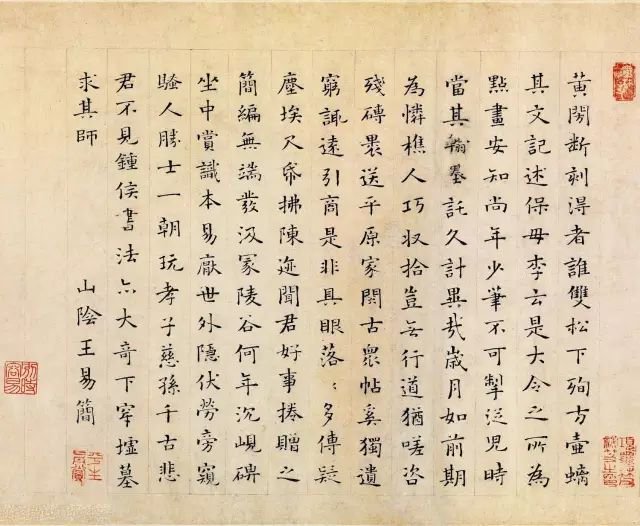 黄閍断刻得者誰雙松下殉方壷螭
其文記述保母李云是大令之所為
點畫安知尚年少筆不可掣從児時
當其翰墨託久計異哉歲月如前期
為憐樵人巧収拾豈無行道猶嗟咨
殘磚裹送平原家閱古眾帖奚獨遺
窮諏遠引商是非具眼落〻多傳疑
塵埃尺帋拂陳迹聞君好事捲贈之
簡編無端發汲冢陵谷何年沉峴碑
坐中賞識本易厭世外隱伏勞旁窺
騷人勝士一朝玩孝子慈孫千古悲
君不見鍾侯書法亦大奇下穿墟墓
求其師
山陰王易簡